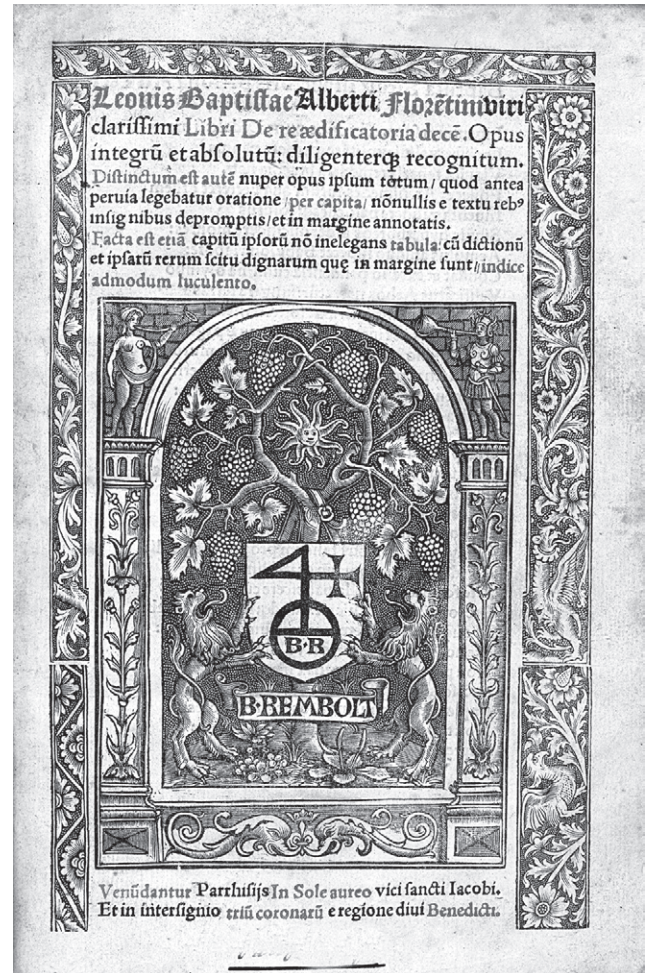 Leonis Baptistae Alberti Florētini viri
clarissimi Libri De re ædificatoria decē. Opus
integrū et absolutū: diligenterqꝫ recognitum.
Distinctum est autē nuper opus ipsum totum/ quod antea
peruia legebatur oratione /per capita/ nōnullis e textu rebꝰ
insignibus depromptis/ et in margine annotatis.
Facta est etiā capitū ipsorū nō inelegans tabula: cū dictionū
et ipsarū rerum scitu dignarum quę in margine sunt/ indice
admodum luculento.
B·R
B·REMBOLT
Venūdantur Parrhisijs In Sole aureo vici sancti Iacobi.
Et in intersignio triū coronarū e regione diui Benedicti.